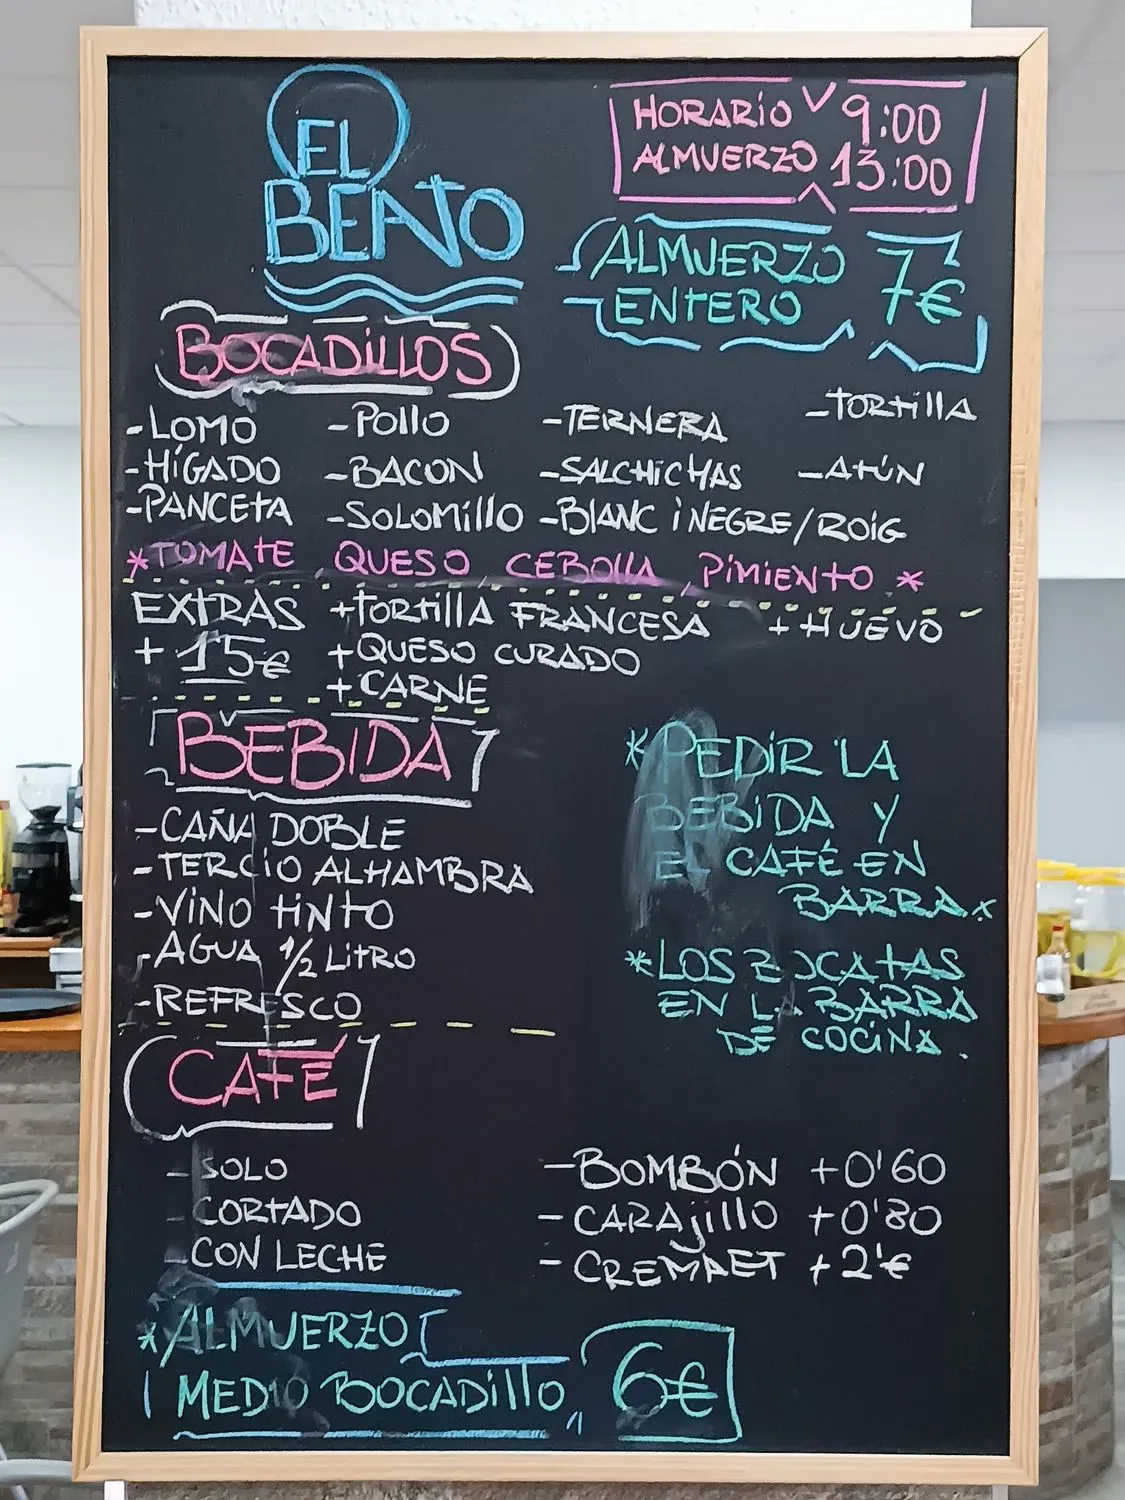 EL
BENTO
HORARIO 9:00
ALMUERZO 13:00
ALMUERZO 7€
ENTERO
BOCADILLOS
-LOMO -POLLO -TERNERA -TORTILLA
-HÍGADO -BACON -SALCHICHAS -ATÚN
-PANCETA -SOLOMILLO -BLANC I NEGRE/ROIG
*TOMATE QUESO, CEBOLLA, PIMIENTO *
EXTRAS +TORTILLA FRANCESA + HUEVO
+ 1'5€ +QUESO CURADO
+CARNE
BEBIDA
-CAÑA DOBLE
-TERCIO ALHAMBRA
-VINO TINTO
-AGUA 1/2 LITRO
-REFRESCO
*PEDIR LA
BEBIDA Y
EL CAFÉ EN
BARRA*
*LOS BOCATAS
EN LA BARRA
DE COCINA.
CAFÉ
-SOLO -BOMBÓN +0'60
-CORTADO -CARAJILLO +0'80
-CON LECHE -CREMAET +2'€
*ALMUERZO
MEDIO BOCADILLO 6€